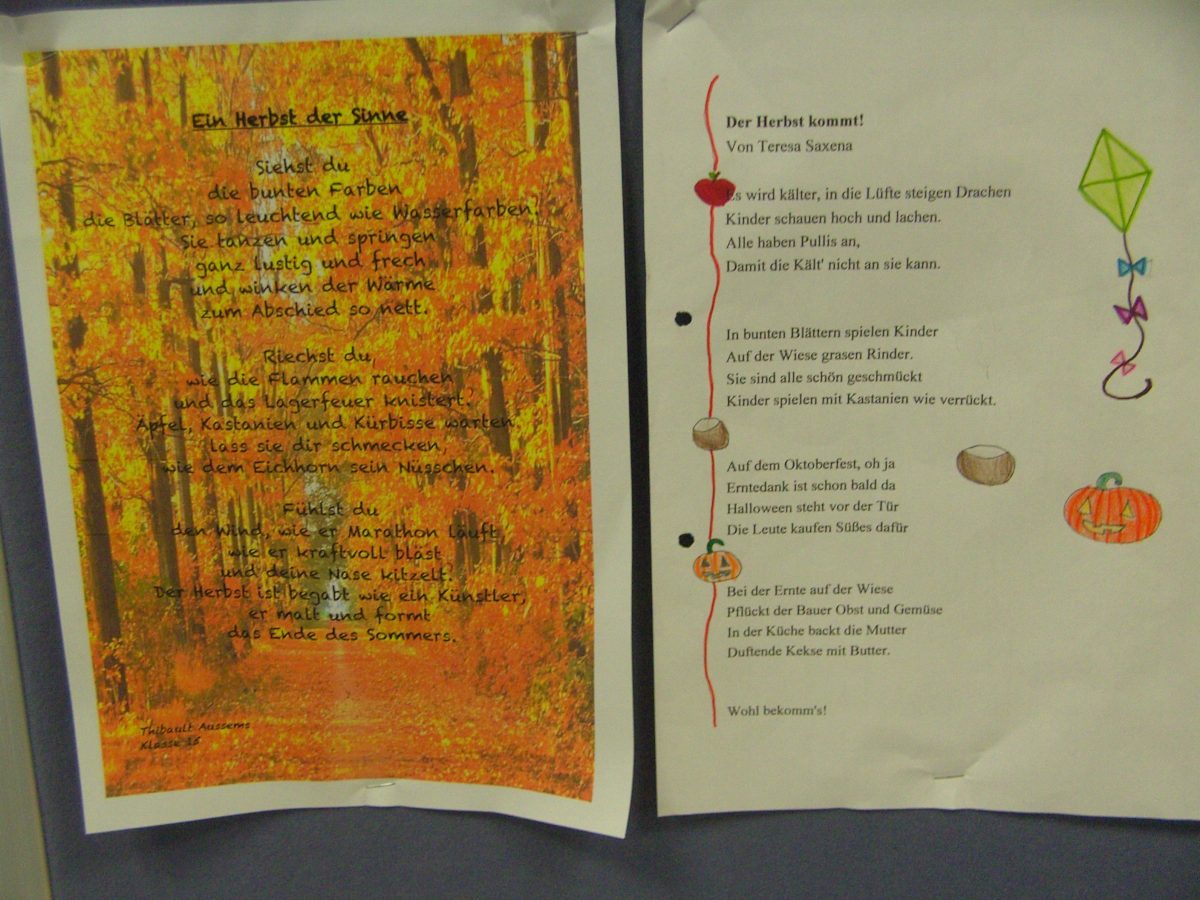 Ein Herbst der Sinne
Siehst du
die bunten Farben
die Blätter, so leuchtend wie Wasserfarben.
Sie tanzen und springen
ganz lustig und frech
und winken der Wärme
zum Abschied so nett.
Riechst du,
wie die Flammen rauchen
und das Lagerfeuer knistert.
Äpfel, Kastanien und Kürbisse warten,
lass sie dir schmecken,
wie dem Eichhorn sein Nüsschen.
Fühlst du
den Wind, wie er Marathon läuft,
wie er kraftvoll bläst
und deine Nase kitzelt.
Der Herbst ist begabt wie ein Künstler,
er malt und formt
das Ende des Sommers.
Thibault Aussems
Klasse
Der Herbst kommt!
Von Teresa Saxena
Es wird kälter, in die Lüfte steigen Drachen
Kinder schauen hoch und lachen.
Alle haben Pullis an,
Damit die Kält' nicht an sie kann.
In bunten Blättern spielen Kinder
Auf der Wiese grasen Rinder.
Sie sind alle schön geschmückt
Kinder spielen mit Kastanien wie verrückt.
Auf dem Oktoberfest, oh ja
Erntedank ist schon bald da
Halloween steht vor der Tür
Die Leute kaufen Süßes dafür
Bei der Ernte auf der Wiese
Pflückt der Bauer Obst und Gemüse
In der Küche backt die Mutter
Duftende Kekse mit Butter.
Wohl bekomm's!